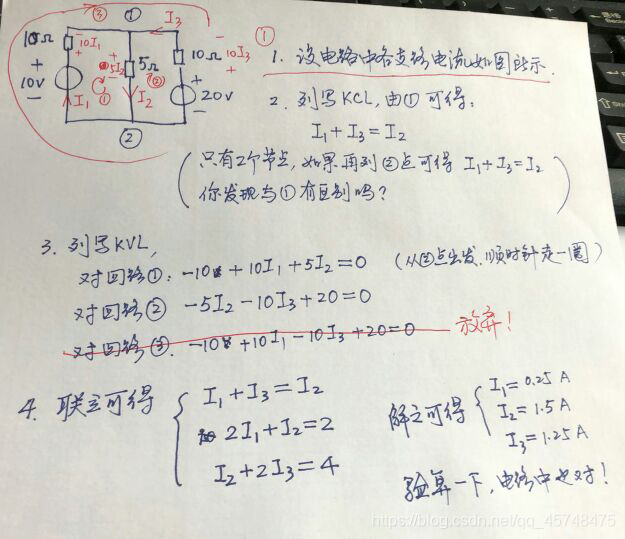 ③ ① I₃
10Ω 10I₁ 5I₂ 5Ω 10Ω 10I₃
+ 10V − I₁ ① I₂ ② + 20V −
②
①
1. 设电路中各支路电流如图所示.
2. 列写KCL, 由①可得:
I₁ + I₃ = I₂
(只有2个节点, 如果再列②点可得 I₁ + I₃ = I₂
你发现与①有区别吗?)
3. 列写KVL,
对回路①: -10 + 10I₁ + 5I₂ = 0 (从②点出发, 顺时针走一圈)
对回路② -5I₂ - 10I₃ + 20 = 0
对回路③. -10 + 10I₁ - 10I₃ + 20 = 0 放弃!
4. 联立可得 { I₁ + I₃ = I₂
2I₁ + I₂ = 2
I₂ + 2I₃ = 4
解之可得 { I₁ = 0.25 A
I₂ = 1.5 A
I₃ = 1.25 A
验算一下, 电路中也对!
https://blog.csdn.net/qq_45748475